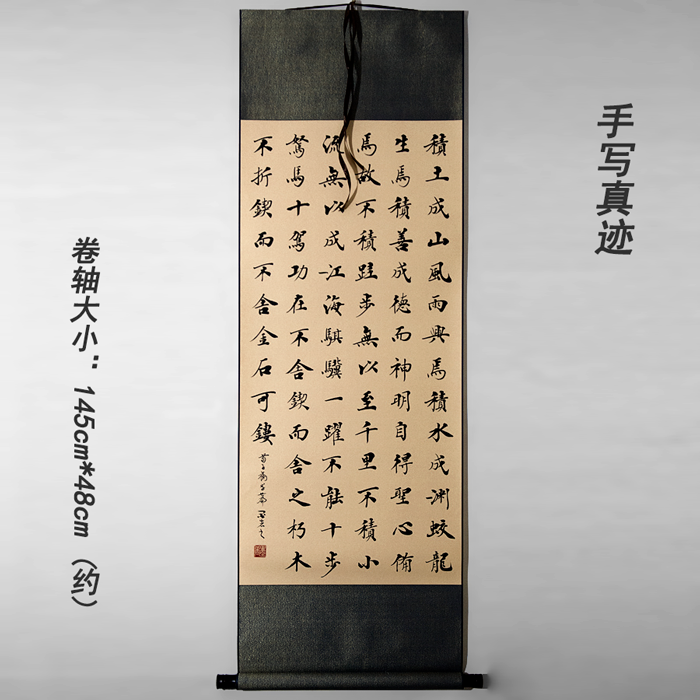 手写真迹
積土成山風雨興焉積水成淵蛟龍
生焉積善成德而神明自得聖心備
焉故不積跬步無以至千里不積小
流無以成江海騏驥一躍不能十步
駑馬十駕功在不舍鍥而舍之朽木
不折鍥而不舍金石可鏤
卷轴大小：145cm*48cm（约）